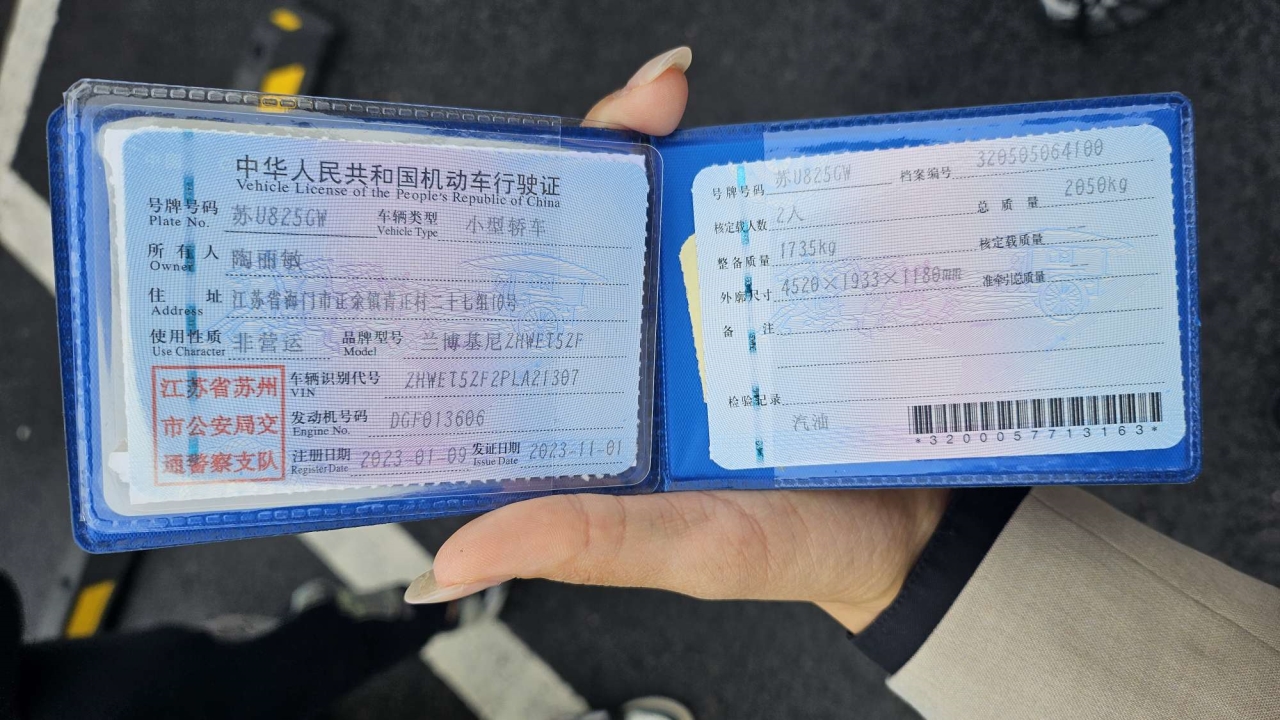 中华人民共和国机动车行驶证
Vehicle License of the People's Republic of China
号牌号码 苏U825GW 车辆类型 小型轿车
Plate No. Vehicle Type
所有人 陶丽敏
Owner
住址 江苏省海门市正余镇肯正村二十七组10号
Address
使用性质 非营运 品牌型号 兰博基尼ZHWET5ZF
Use Character Model
江苏省苏州
市公安局交
通警察支队
车辆识别代号 ZHWET5ZF2PLA21307
VIN
发动机号码 DGF013606
Engine No.
注册日期 2023-01-09 发证日期 2023-11-01
Register Date Issue Date
号牌号码 苏U825GW 档案编号 320505064100
核定载人数 2人 总质量 2050kg
整备质量 1735kg 核定载质量 --
外廓尺寸 4520×1933×1180mm 准牵引总质量 --
备注
检验记录
汽油
*3200057713163*